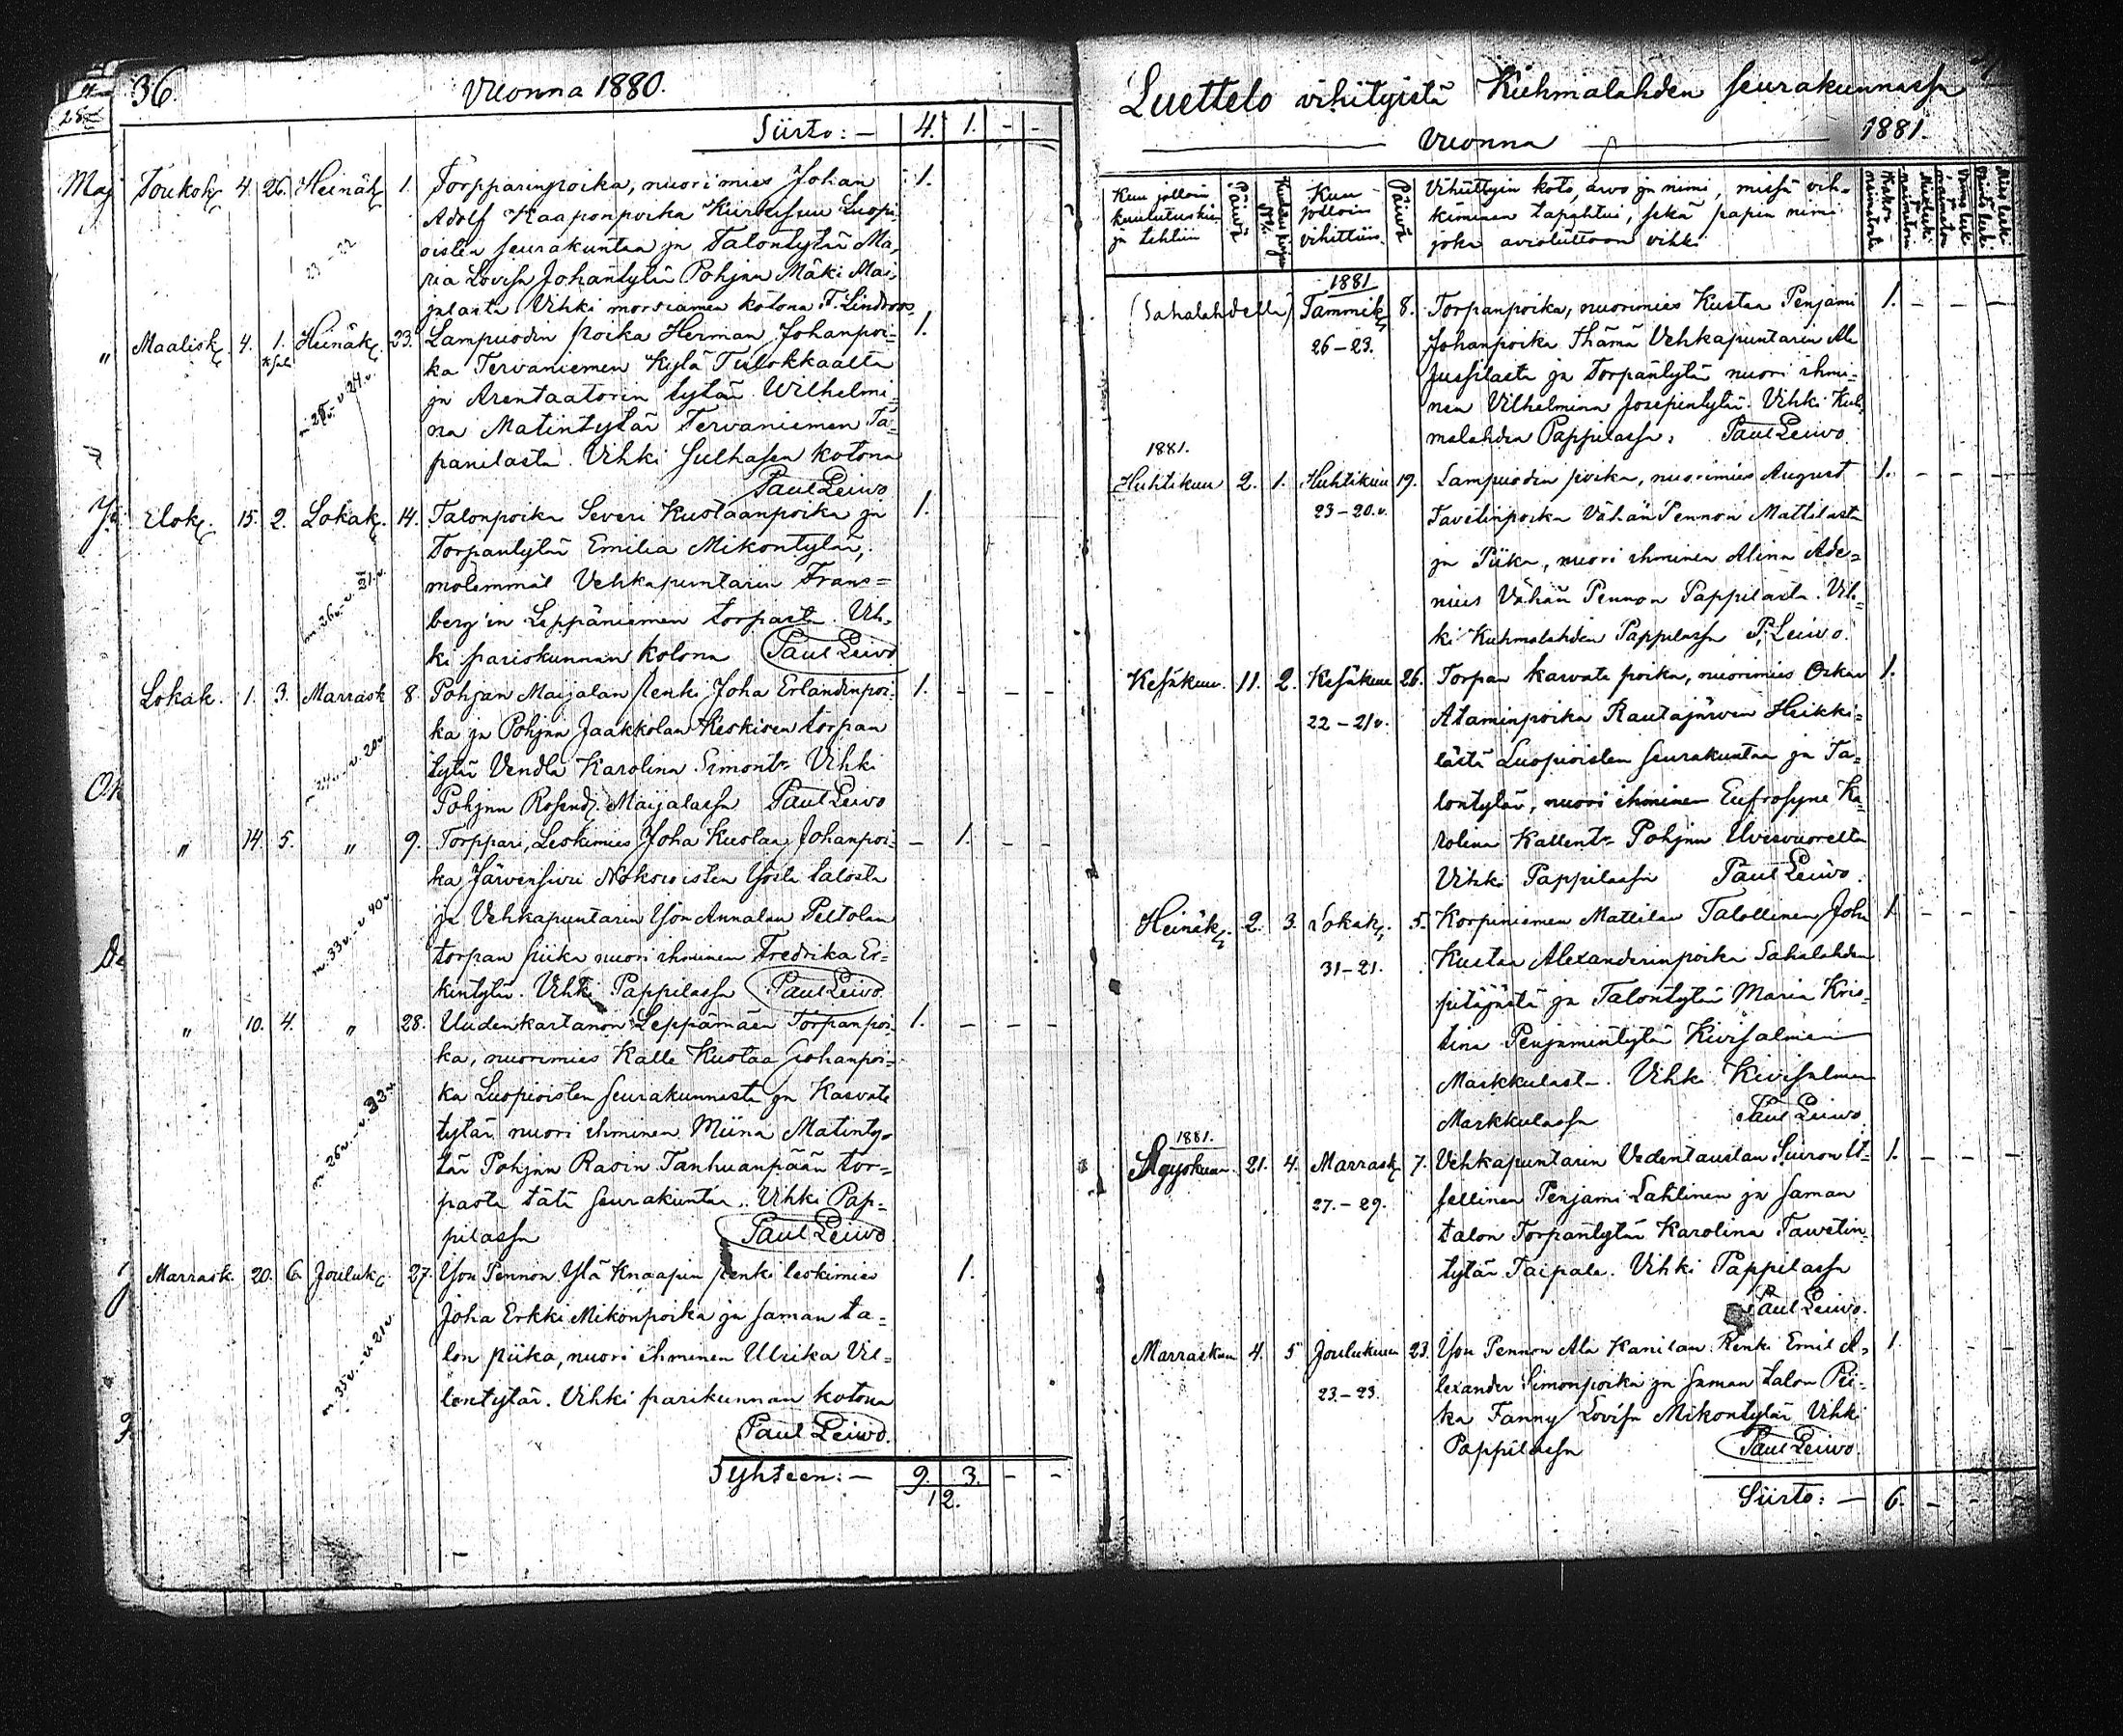 36.
Vuonna 1880.
Siirto: — 4. 1. - -
Maj Toukok. 4. 26. Heinäk. 1. Torpparinpoika, nuorimies Johan 1.
Adolf Kaaponpoika Kurkisuu Luopi-
oisten seurakuntaa ja Talontytär Ma-
23 - 22
ria Lovisa Johantytär Pohjan Mäki Mai-
jalasta. Vihki morsiamen kotona F. Lindroos.
" Maalisk. 4. 1. Heinäk. 23. Lampuodin poika Herman Johanpoi- 1.
ka Tervaniemen Kylä Tulokkaalta
ja Arentaatorin tytär Wilhelmi-
na Matintytär Tervaniemen Ta-
panilasta. Vihki Sulhasen kotona
Paul Leivo
Elok. 15. 2. Lokak. 14. Talonpoika Severi Kustaanpoika ja 1.
Torpantytär Emilia Mikontytär,
molemmat Vehkapuntarin Frans=
berg'in Leppäniemen torpasta. Vih-
ki pariskunnan kotona Paul Leivo
Lokak. 1. 3. Marrask 8. Pohjan Maijalan renki Joha Erlandinpoi- 1. - - -
ka ja Pohjan Jaakkolan Keskisen torpan
tytär Vendla Karolina Simont: Vihki
Pohjan Rosend. Maijalassa Paul Leivo
" 14. 5. " 9. Torppari, Leskimies Joha Kustaa Johanpoi- - 1. - -
ka Järvensivu
ja Vehkapuntarin Yön Annalan Peltolan
m. 33 v. - v 40 v.
torpan piika nuori ihminen Fredrika Er=
kintytär. Vihki Pappilassa Paul Leivo
" 10. 4. " 28. Uudenkartanon Leppämäen Torpanpoi- 1. - - -
ka, nuorimies Kalle Kustaa Johanpoi-
ka Luopioisten seurakunnasta ja Kasvate
tytär nuori ihminen Miina Matinty-
m. 26 v. - v. 33 v.
tär Pohjan Rasin Tanhuanpään tor-
pasta tätä seurakuntaa. Vihki Pap-
pilassa Paul Leivo
Marrask. 20. 6. Jouluk. 27. Yön Pennon Ylä Knaapin renki leskimies 1.
Joha Erkki Mikonpoika ja saman ta=
lon piika, nuori ihminen Ulrika Vil=
m. 35 v. - v. 21 v.
lentytär. Vihki parikunnan kotona
Paul Leivo.
Syhteen: — 9. 3. - -
12.
Luettelo vihityistä Kuhmalahden seurakunnassa
Vuonna 1881.
Kun jolloin kuulutuskirja tehtiin
Päivä
Kun jolloin vihittiin
Päivä
Vihittyin koto, arvo ja nimi, missä vih-
kiminen tapahtui, sekä papin nimi
joka avioliittoon vihki.
1881
(Sahalahdella) Tammik. 8. Torpanpoika, nuorimies Kustaa Penjami 1. - - -
26 - 23. Johanpoika Ihamä Vehkapuntarin Ala
Jussilasta ja Torpantytär nuori ihmi-
nen Vilhelmina Josepintytär. Vihki Kuh-
malahden Pappilassa. Paul Leivo.
1881.
Huhtikuu 2. 1. Huhtikuu 19. Lampuodin poika, nuorimies August 1. - - -
23 - 20. v. Tavetinpoika Vähän Pennon Mattilasta
ja Piika, nuori ihminen Alina Ade=
nius Vähän Pennon Pappilasta. Vih-
ki Kuhmalahden Pappilassa P. Leivo.
Kesäkuu. 11. 2. Kesäkuu 26. Torpan kasvate poika, nuorimies Oskar 1.
22 - 21 v. Ataminpoika Rautajärven Heikki=
lästä Luopioisten seurakuntaa ja Ta=
lontytär, nuori ihminen Eufrosyne Ka-
rolina Kallent: Pohjan Uvesvuorelta
Vihki Pappilassa Paul Leivo.
Heinäk. 2. 3. Lokak. 5. Korpiniemen Mattilan Talollinen Joha 1. - - -
31 - 21. Kustaa Alexanderinpoika Sahalahden
pitäjästä ja Talontytär Maria Kris-
tina Penjamintytär Kivisalmen
Markkulasta. Vihki Kivisalmen
Markkulassa Paul Leivo.
1881.
Syyskuun. 21. 4. Marrask. 7. Vehkapuntarin Vedentaustan Suiron It- 1. - - -
27. - 29. sellinen Penjami Lahtinen ja saman
talon Torpantytär Karolina Tawetin-
tytär Taipale. Vihki Pappilassa
Paul Leivo.
Marraskuu 4. 5 Joulukuu 23. Yön Pennon Ala Kanilan Renki Emil A- 1. - -
23 - 23. lexander Simonpoika ja saman talon Pii-
ka Fanny Lovisa Mikontytär Vihki
Pappilassa Paul Leivo.
Siirto: — 6. - - -